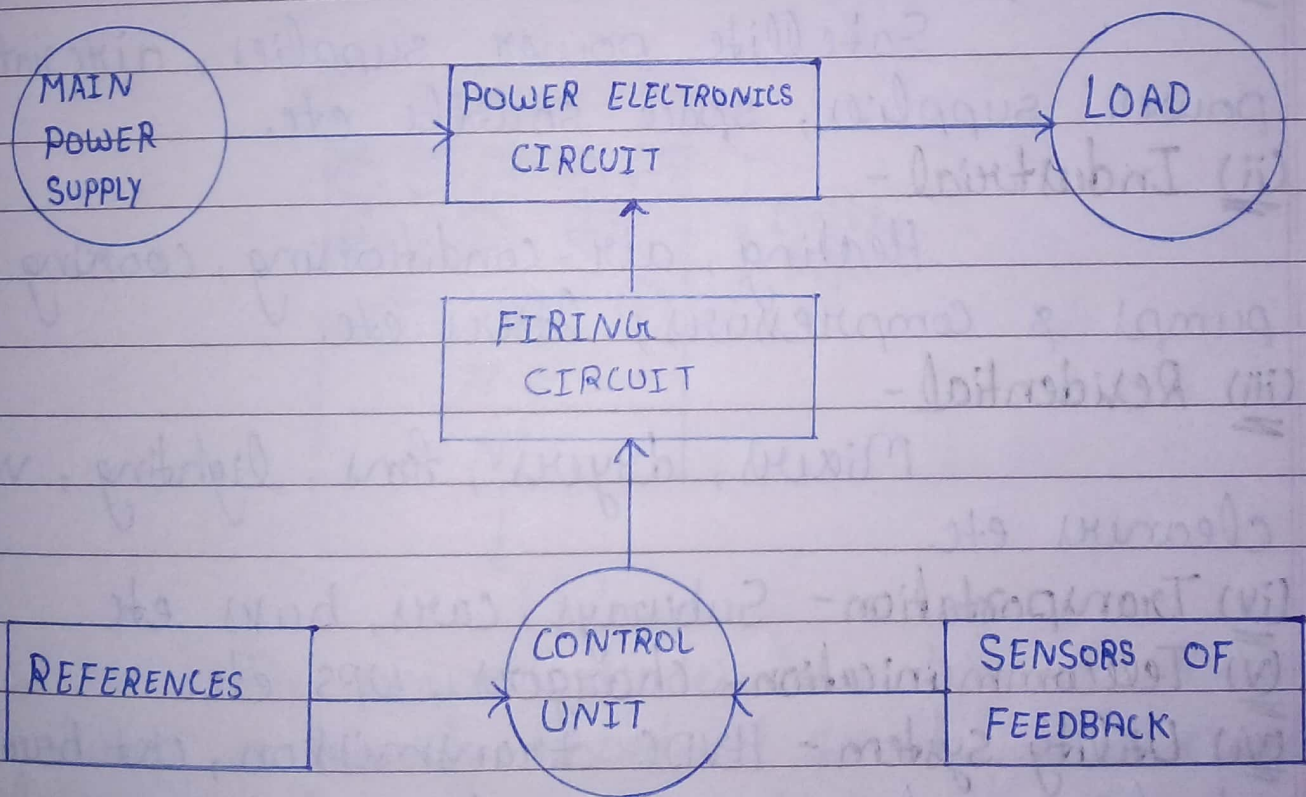 MAIN
POWER
SUPPLY
POWER ELECTRONICS
CIRCUIT
LOAD
FIRING
CIRCUIT
REFERENCES
CONTROL
UNIT
SENSORS OF
FEEDBACK